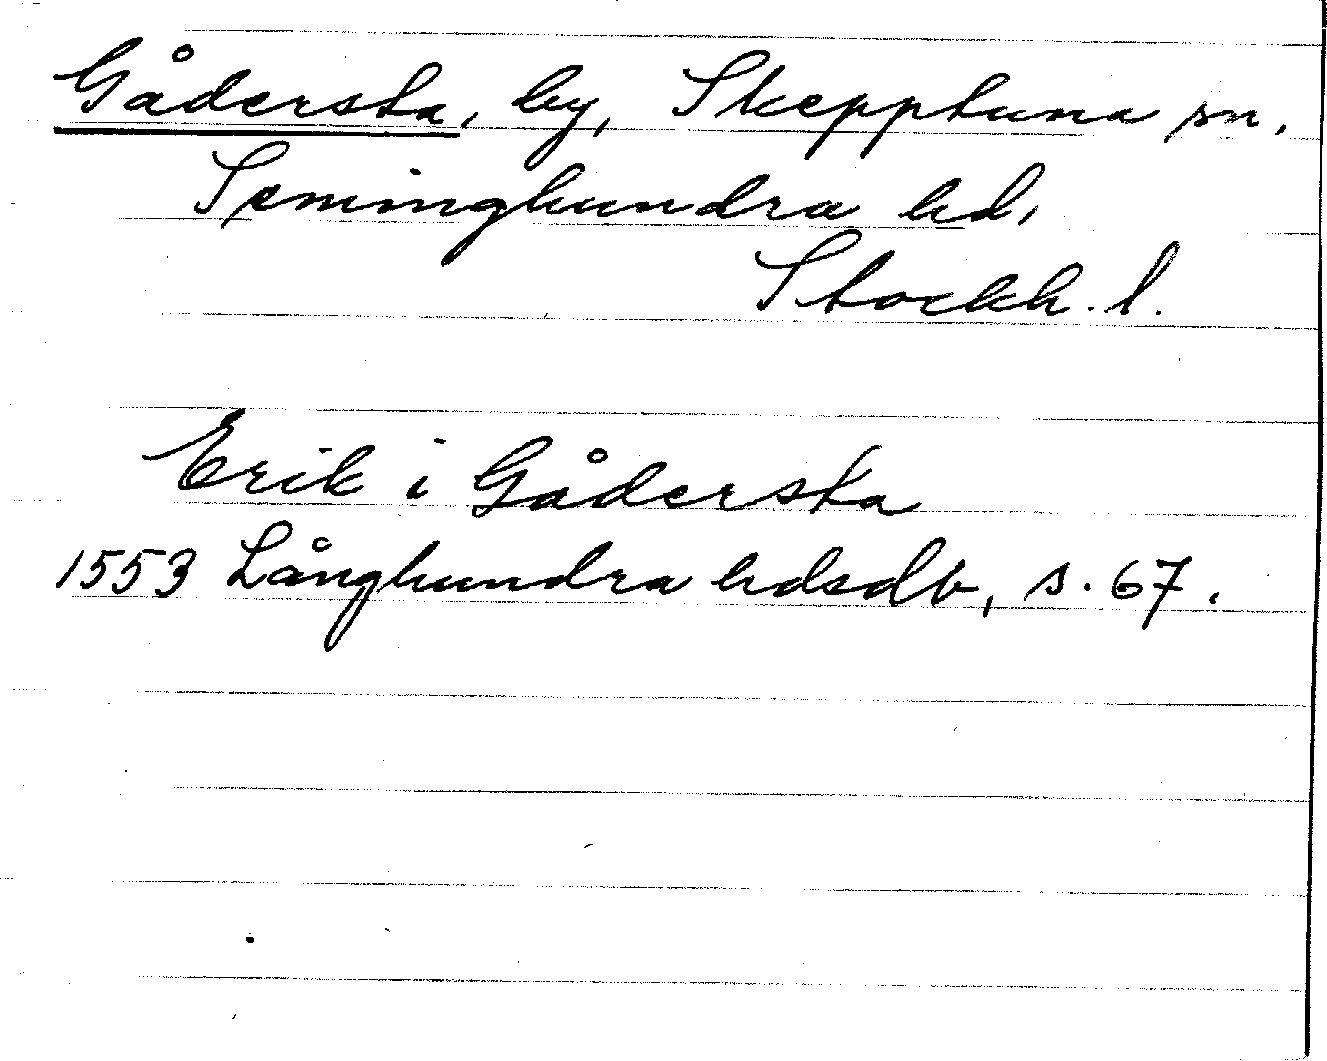 Gådersta, by, Skepptuna sn,
Seminghundra hd,
Stockh. l.
Erik i Gådersta
1553 Långhundra hdsdb, s. 67.